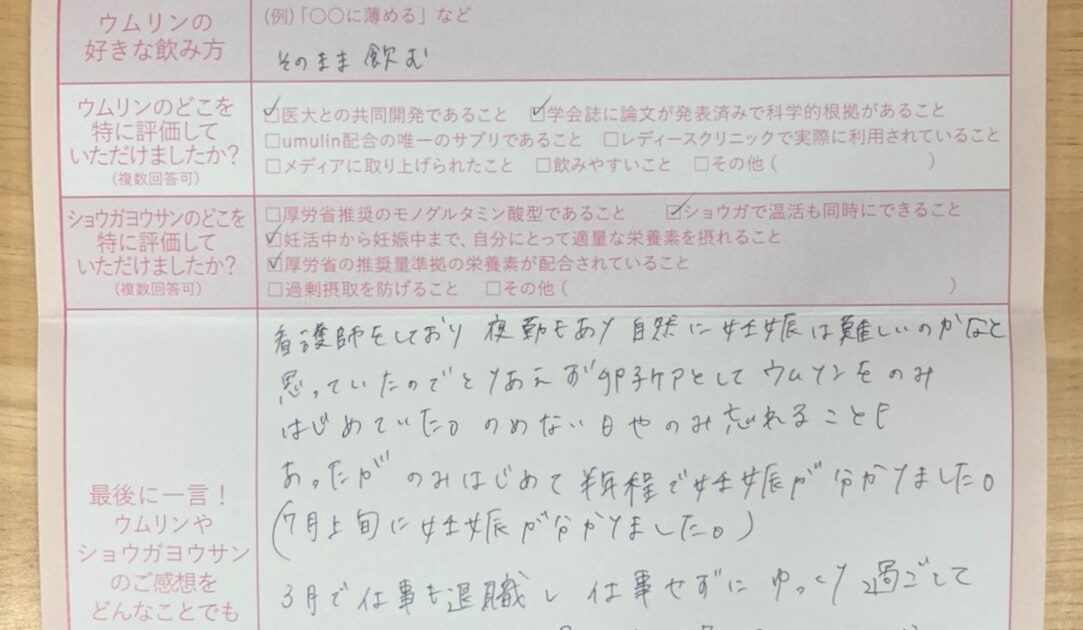 ウムリンの
好きな飲み方
(例)「〇〇に薄める」など
そのまま 飲む
ウムリンのどこを
特に評価して
いただけましたか?
(複数回答可)
☑医大との共同開発であること ☑学会誌に論文が発表済みで科学的根拠があること
□umulin配合の唯一のサプリであること □レディースクリニックで実際に利用されていること
□メディアに取り上げられたこと □飲みやすいこと □その他( )
ショウガヨウサンのどこを
特に評価して
いただけましたか?
(複数回答可)
□厚労省推奨のモノグルタミン酸型であること ☑ショウガで温活も同時にできること
☑妊活中から妊娠中まで、自分にとって適量な栄養素を摂れること
☑厚労省の推奨量準拠の栄養素が配合されていること
□過剰摂取を防げること □その他( )
最後に一言!
ウムリンや
ショウガヨウサン
のご感想を
どんなことでも
看護師をしており 夜勤もあり 自然に妊娠は難しいのかなと
思っていたのでとりあえず卵子ケアとして ウムリンをのみ
はじめていた。のめない日やのみ忘れることも
あったが のみはじめて半年程で妊娠が分かりました。
(7月上旬に妊娠が分かりました。)
3月で仕事も退職し 仕事せずに ゆっくり過ごして